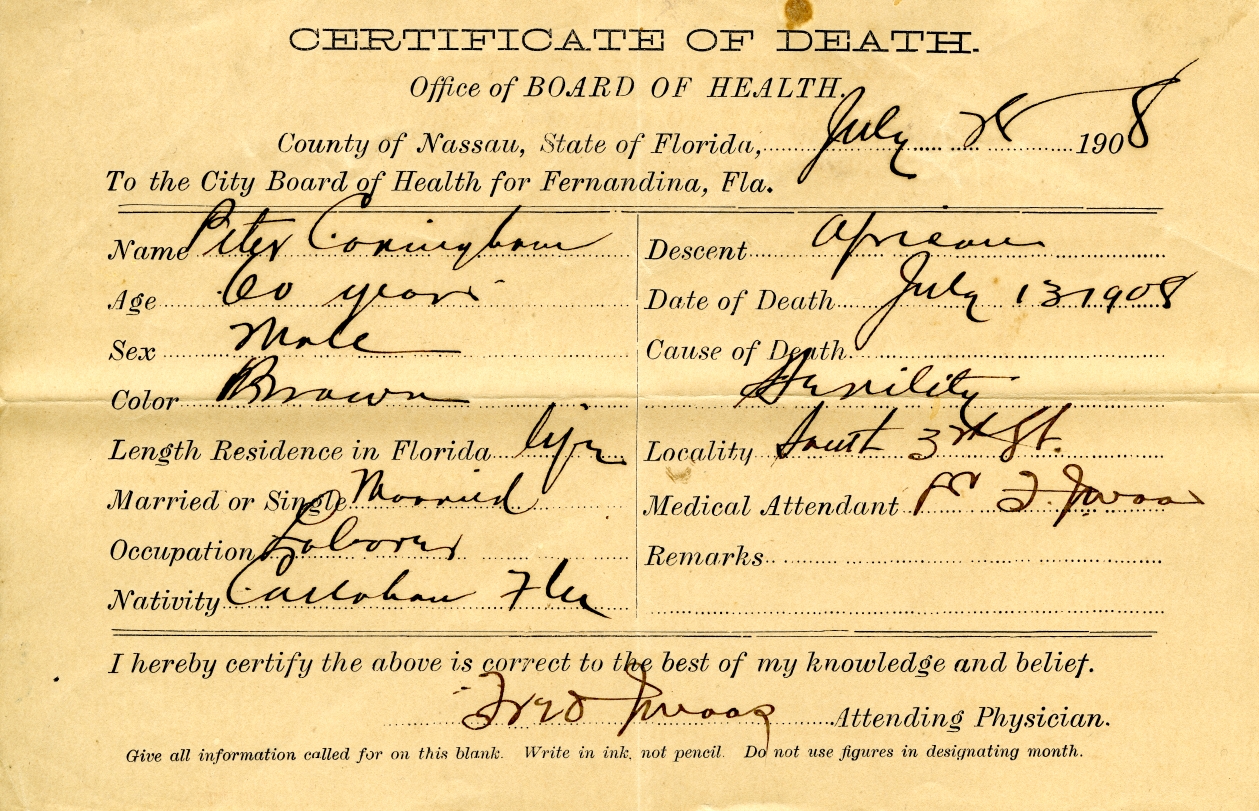 CERTIFICATE OF DEATH.
Office of BOARD OF HEALTH.
County of Nassau, State of Florida, July 28 1908
To the City Board of Health for Fernandina, Fla.
Name Peter Coningham
Age 60 years
Sex Male
Color Brown
Length Residence in Florida life
Married or Single Married
Occupation Laborer
Nativity Callahan Fla
Descent African
Date of Death July 13 1908
Cause of Death
Senility
Locality 3rd St.
Medical Attendant
Remarks
I hereby certify the above is correct to the best of my knowledge and belief.
Attending Physician.
Give all information called for on this blank. Write in ink, not pencil. Do not use figures in designating month.